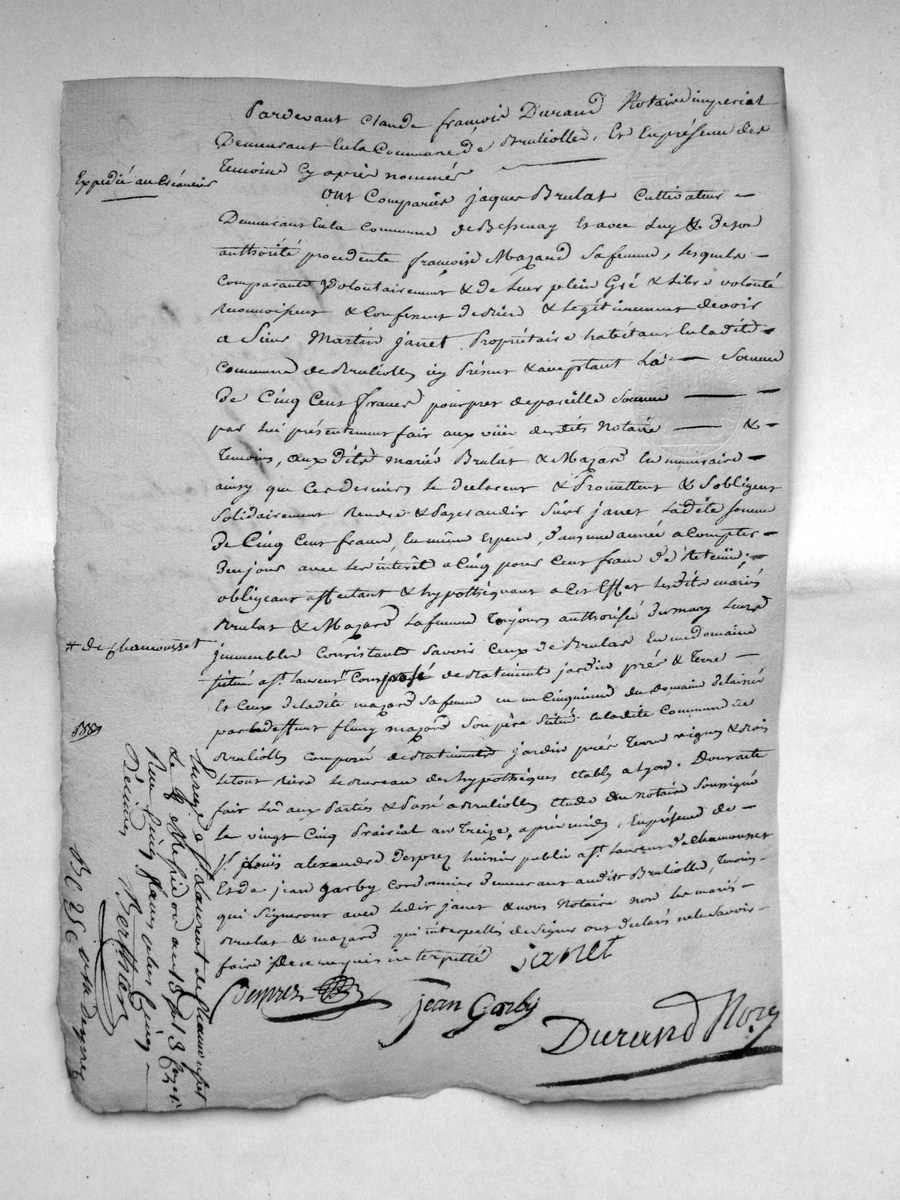 Pardevant Claude françois Durand Notaire imperial
Demeurant En la Commune de Brulliolles, Et En présence des
Temoins Cy après nommés
Expedié au Créancier
Ont Comparus jaques Brulat Cultivateur
Demeurant En la Commune de Bessenay Et avec Luy & De son
authorité procedente françoise Mazard Sa femme, lesquels
Comparants volontairement & de Leur plein Gré & Libre volonté
reconnoissent & Confessent devoir & Légitimement devoir
a Sieur Martin janet Propriétaire habitant En la dite
Commune de Brulliolles icy Présent & acceptant La Somme
De Cinq Cent francs pour pret de pareille Somme
par lui présentement fait aux vüe des dits Notaire &
Temoins, aux dits mariés Brulat & Mazard En numeraire
ainsy que Ces derniers le declarent & Promettent & S'obligent
Solidairement Rendre & Payer audit Sieur janet Ladite Somme
De Cinq Cent francs, En même Espece, Dans une année a Compter
De ce jour avec Les intérêt a Cinq pour Cent franc de Retenüe,
obligeant affectant & hypothéquant a Cet Effet Lesdits mariés
Brulat & Mazard La femme Toujours authorisée Du mary Leurs
# de Chamousset
jmmeubles Consistants Savoir Ceux de Brulat En un domaine
Situé a St Laurent # Composé de Batiments jardin prés & Terre
Et Ceux de ladite mazard Sa femme en un Cinquieme du Domaine delaissé
par le deffunt fleury mazard Son père Situé En la dite Commune de
Brulliolles Composé de Batiments jardin prés Terre vignes & Bois
Le tout riere Le Bureau des hypothèques Etably a Lyon. Dont acte
fait Lu aux Parties & Passé a Brulliolles Etude du Notaire Soussigné
Le vingt Cinq Prairial an Treize, après midy, En présence de
Sr Loüis alexandre Desprez huissier public a St Laurent de Chamousset
Et de jean Garby Cordonnier Demeurant audit Brulliolles, Temoins
qui Signeront avec Ledit janet & nous Notaire non les mariés
Brulat & mazard qui interpellés de Signer ont declarés ne le Savoir
faire de ce requis interpellé
janet
Desprez
jean Garby
Durand Nore
Enregé a St Laurent de Chamousset
Rece Cinq francs cinquante cinq
Berthier